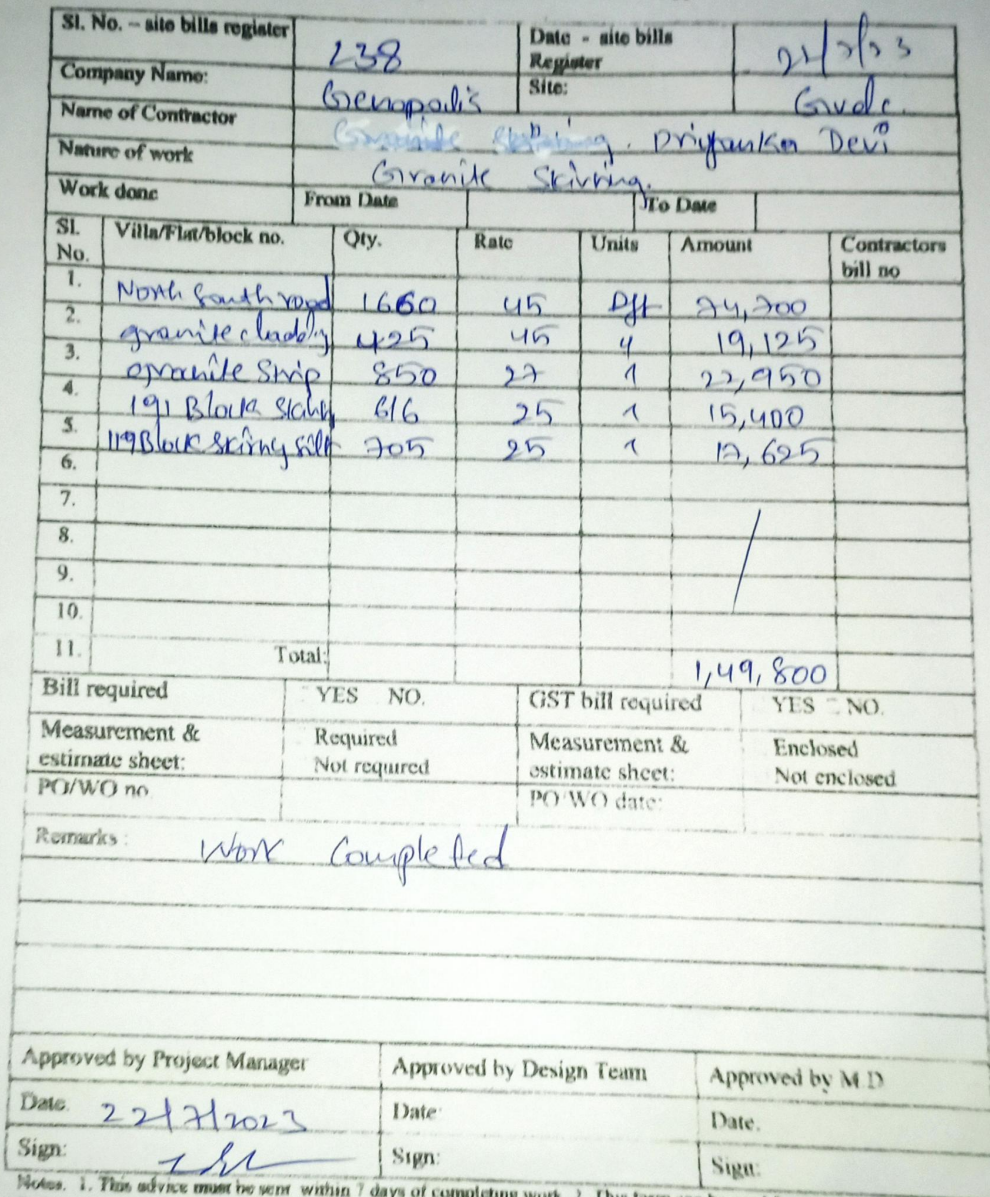 Sl. No. – site bills register 238 Date - site bills Register 21/7/23
Company Name: Genopolis Site: Gvdc.
Name of Contractor Priyanka Devi
Nature of work Granite Skirring.
Work done From Date To Date
Sl. No. Villa/Flat/block no. Qty. Rate Units Amount Contractors bill no
1. North South road 1660 45 Rft 74,700
2. granite cladding 425 45 " 19,125
3. granite Strip 850 27 " 22,950
4. 191 Block 616 25 " 15,400
5. 119 Block 705 25 " 17,625
6.
7.
8.
9.
10.
11. Total: 1,49,800
Bill required YES NO. GST bill required YES NO.
Measurement & estimate sheet: Required Not required Measurement & estimate sheet: Enclosed Not enclosed
PO/WO no PO/WO date:
Remarks : Work Completed
Approved by Project Manager Approved by Design Team Approved by M D
Date. 22/7/2023 Date: Date.
Sign: Sign: Sign:
Notes. 1. This advice must be sent within 7 days of completing work. 2. This form